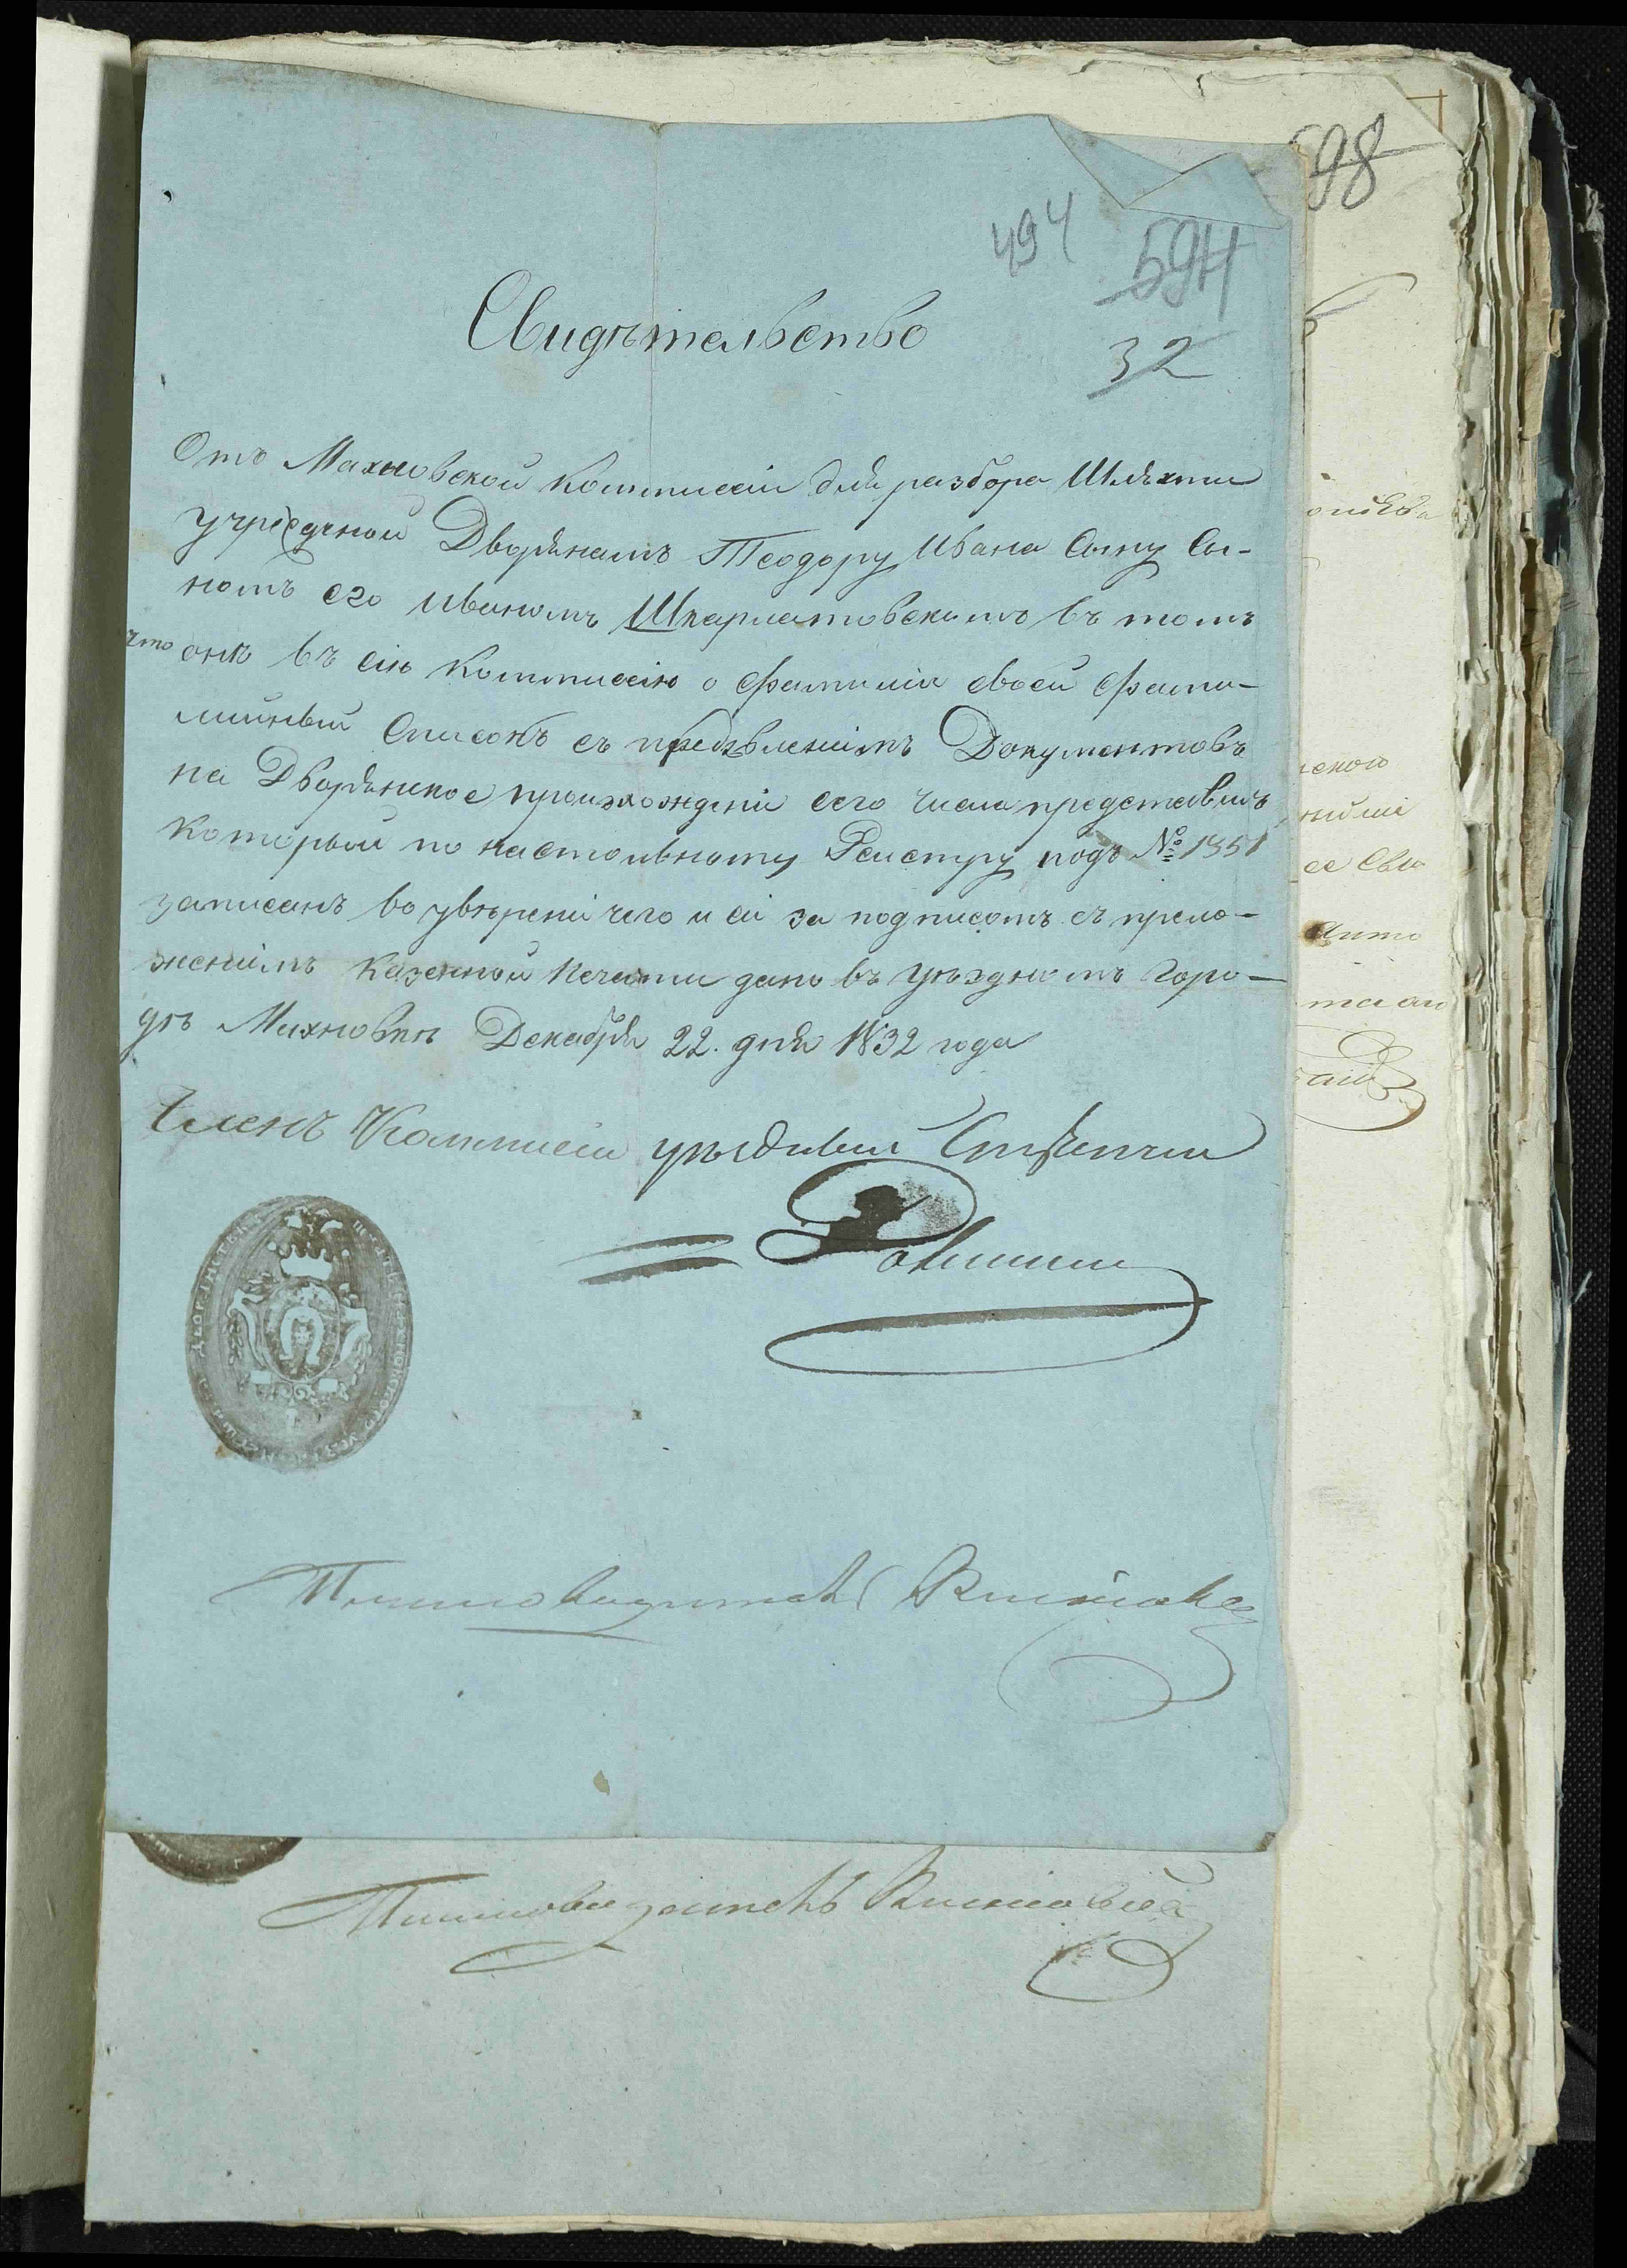 98
494
594
32
Свидѣтельство
Отъ Махновской Коммиссіи для разбора Шляхти
учрежденой Дворянамъ Теодору Ивана Сыну Сы-
номъ его Иваномъ Шкарлатовскимъ въ томъ
что онъ въ сію Коммиссію о фамиліи своей фами-
лийный Списокъ съ предъявленіемъ Документовъ
на Дворянское произхожденіи сего числа представилъ
который по настольному Реистру подъ № 1351
записанъ во увѣреніи чего и сіе за подписомъ съ прело-
женіемъ Казенной Печати дано въ уѣздномъ Горо-
дѣ Махновкѣ Декабря 22. дня 1832 года
Членъ Коммисіи уѣздный Стряпчий
Письмоводитель
Письмоводитель